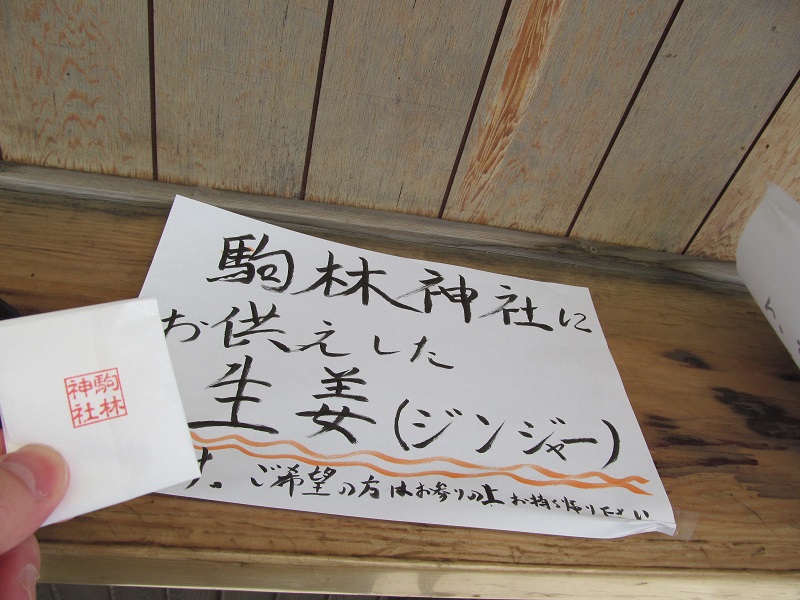 駒林神社に
お供えした
生姜(ジンジャー)
す。ご希望の方はお参りの上お持ち帰り下さい
駒林
神社